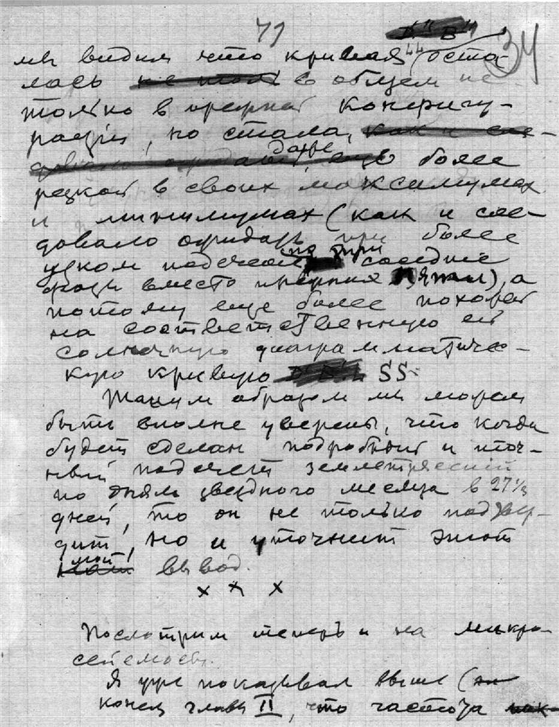 71 34
мы видим что кривая 44 оста-
лась в общем не
только в прежней конфигу-
рации, но стала даже
более
резкой в своих максимумах
и минимумах (как и сле-
довало ожидать при более
узком подсчете по три соседние
вместо прежних пяти), а
потому еще более похожей
на соответственную ей
солнечную диаграмматичес-
кую кривую SS.
Таким образом мы можем
быть вполне уверены, что когда
будет сделан подробный и точ-
ный подсчет землетрясений
по дням звездного месяца в 27⅓
дней, то он не только подтвер-
дит, но и уточнит этот
мой вывод.
х х х
Посмотрим теперь и на микро-
сейсмость.
Я уже показывал выше (
конец главы II, что частота